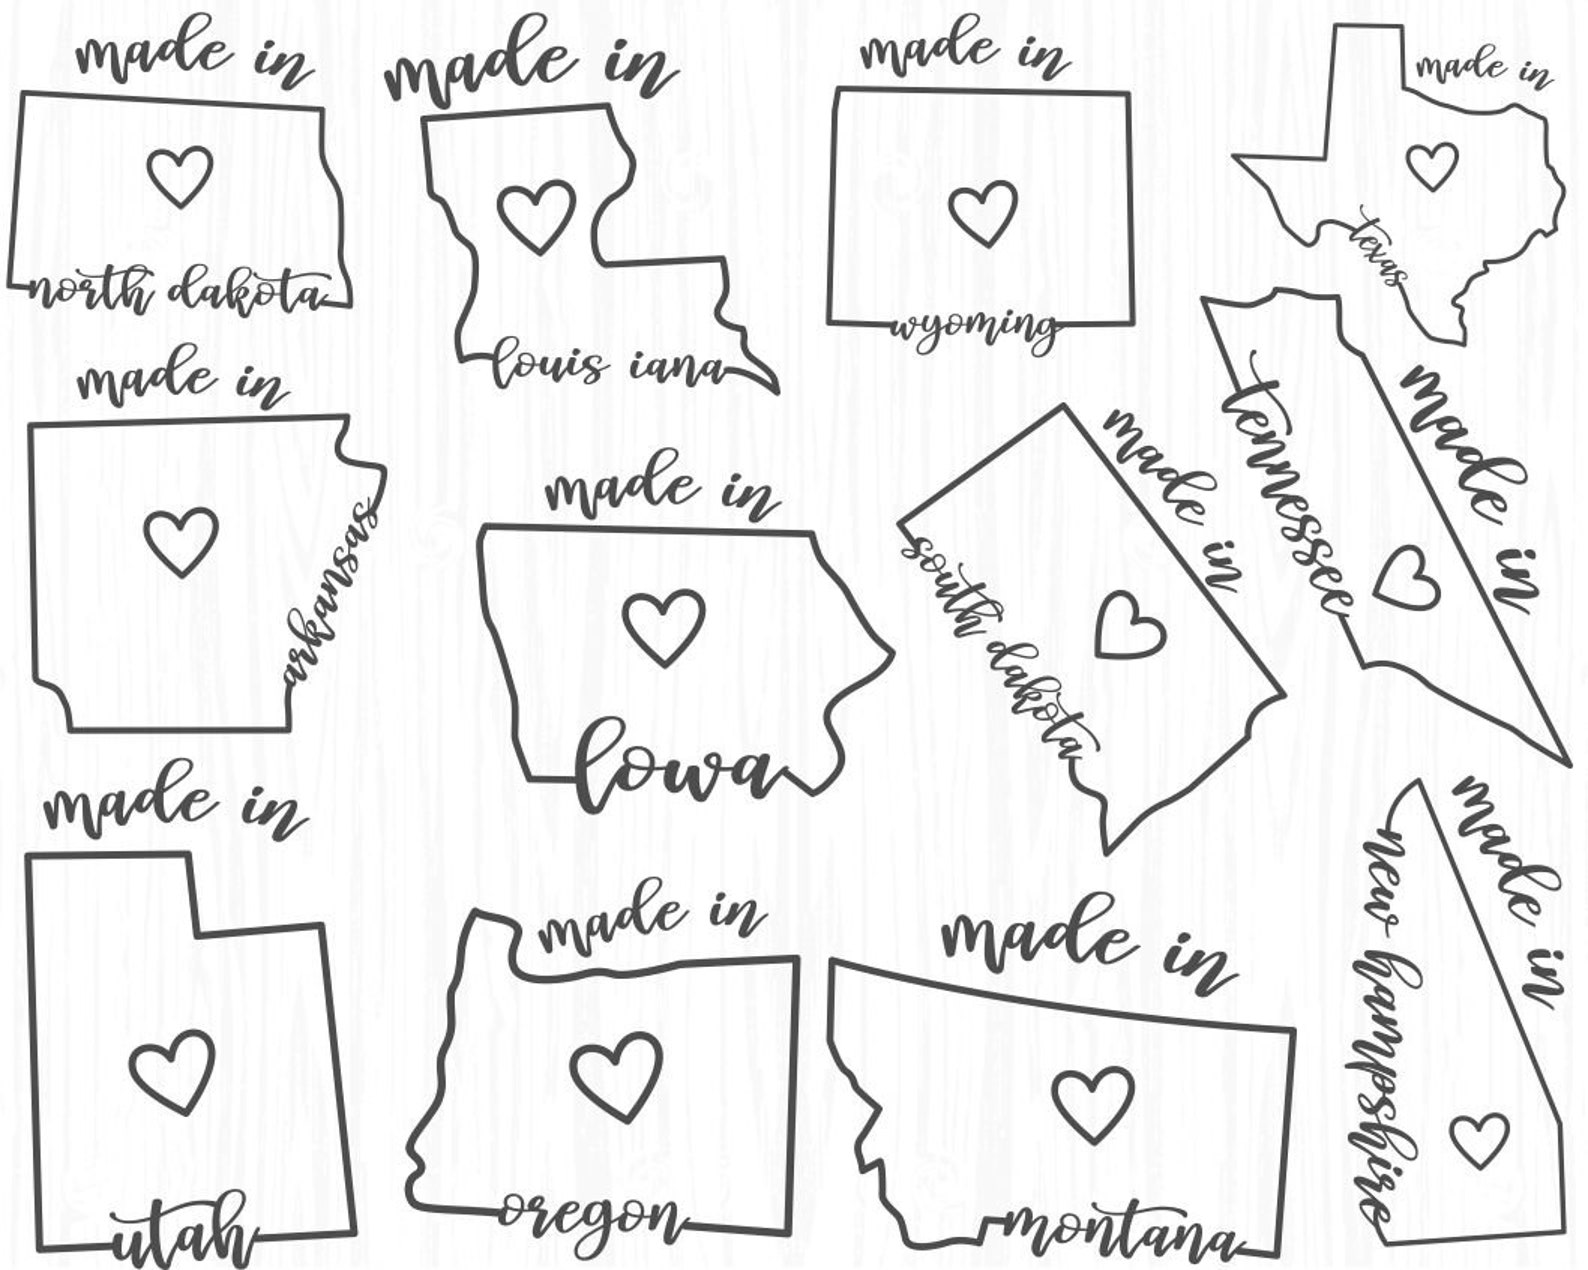 made in
north dakota
made in
louis iana
made in
wyoming
made in
texas
made in
arkansas
made in
lowa
made in
south dakota
made in
tennessee
made in
utah
made in
oregon
made in
montana
made in
new hampshire